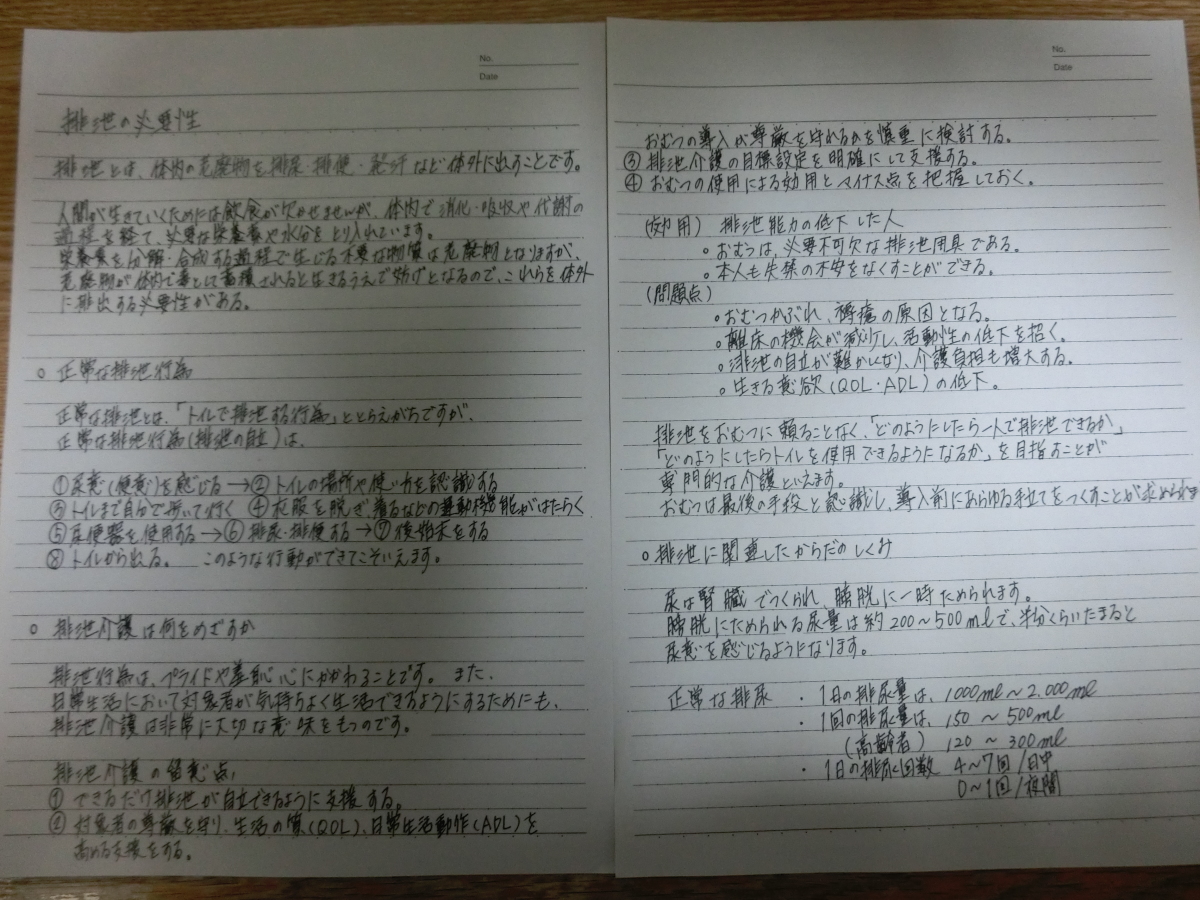 No.
Date
排泄の必要性
排泄とは、体内の老廃物を排尿・排便・発汗など体外に出すことです。
人間が生きていくためには飲食が欠かせませんが、体内で消化・吸収や代謝の
過程を経て、必要な栄養素や水分をとり入れています。
栄養素を分解・合成する過程で生じる不要な物質は老廃物となりますが、
老廃物が体内で毒として蓄積されると生きるうえで妨げとなるので、これらを体外
に排出する必要性がある。
○ 正常な排泄行為
正常な排泄とは、「トイレで排泄する行為」ととらえがちですが、
正常な排泄行為(排泄の自立)は、
①尿意(便意)を感じる→②トイレの場所や使い方を認識する
③トイレまで自分で歩いて行く ④衣服を脱ぎ着るなどの運動機能がはたらく
⑤尿便器を使用する→⑥排尿・排便する→⑦後始末をする
⑧トイレから出る。 このような行動ができてこそいえます。
○ 排泄介護は何をめざすか
排泄行為は、プライドや羞恥心にかかわることです。また、
日常生活において対象者が気持ちよく生活できるようにするためにも、
排泄介護は非常に大切な意味をもつのです。
排泄介護の留意点
① できるだけ排泄が自立できるように支援する。
② 対象者の尊厳を守り、生活の質(QOL)、日常生活動作(ADL)を
高める支援をする。
No.
Date
おむつの導入が尊厳を守れるかを慎重に検討する。
③ 排泄介護の目標設定を明確にして支援する。
④ おむつの使用による効用とマイナス点を把握しておく。
(効用) 排泄能力の低下した人
○おむつは、必要不可欠な排泄用具である。
○本人も失禁の不安をなくすことができる。
(問題点)
○おむつかぶれ、褥瘡の原因となる。
○離床の機会が減少し、活動性の低下を招く。
○排泄の自立が難かしくなり、介護負担も増大する。
○生きる意欲(QOL・ADL)の低下。
排泄をおむつに頼ることなく、「どのようにしたら一人で排泄できるか」
「どのようにしたらトイレを使用できるようになるか」を目指すことが
専門的な介護といえます。
おむつは最後の手段と認識し、導入前にあらゆる手立てをつくすことが求められます
○ 排泄に関連したからだのしくみ
尿は腎臓でつくられ、膀胱に一時ためられます。
膀胱にためられる尿量は約200～500mlで、半分くらいたまると
尿意を感じるようになります。
正常な排尿 ・1日の排尿量は、1000ml～2.000ml
・1回の排尿量は、150～500ml
(高齢者) 120～300ml
・1日の排尿回数 4～7回/日中
0～1回/夜間